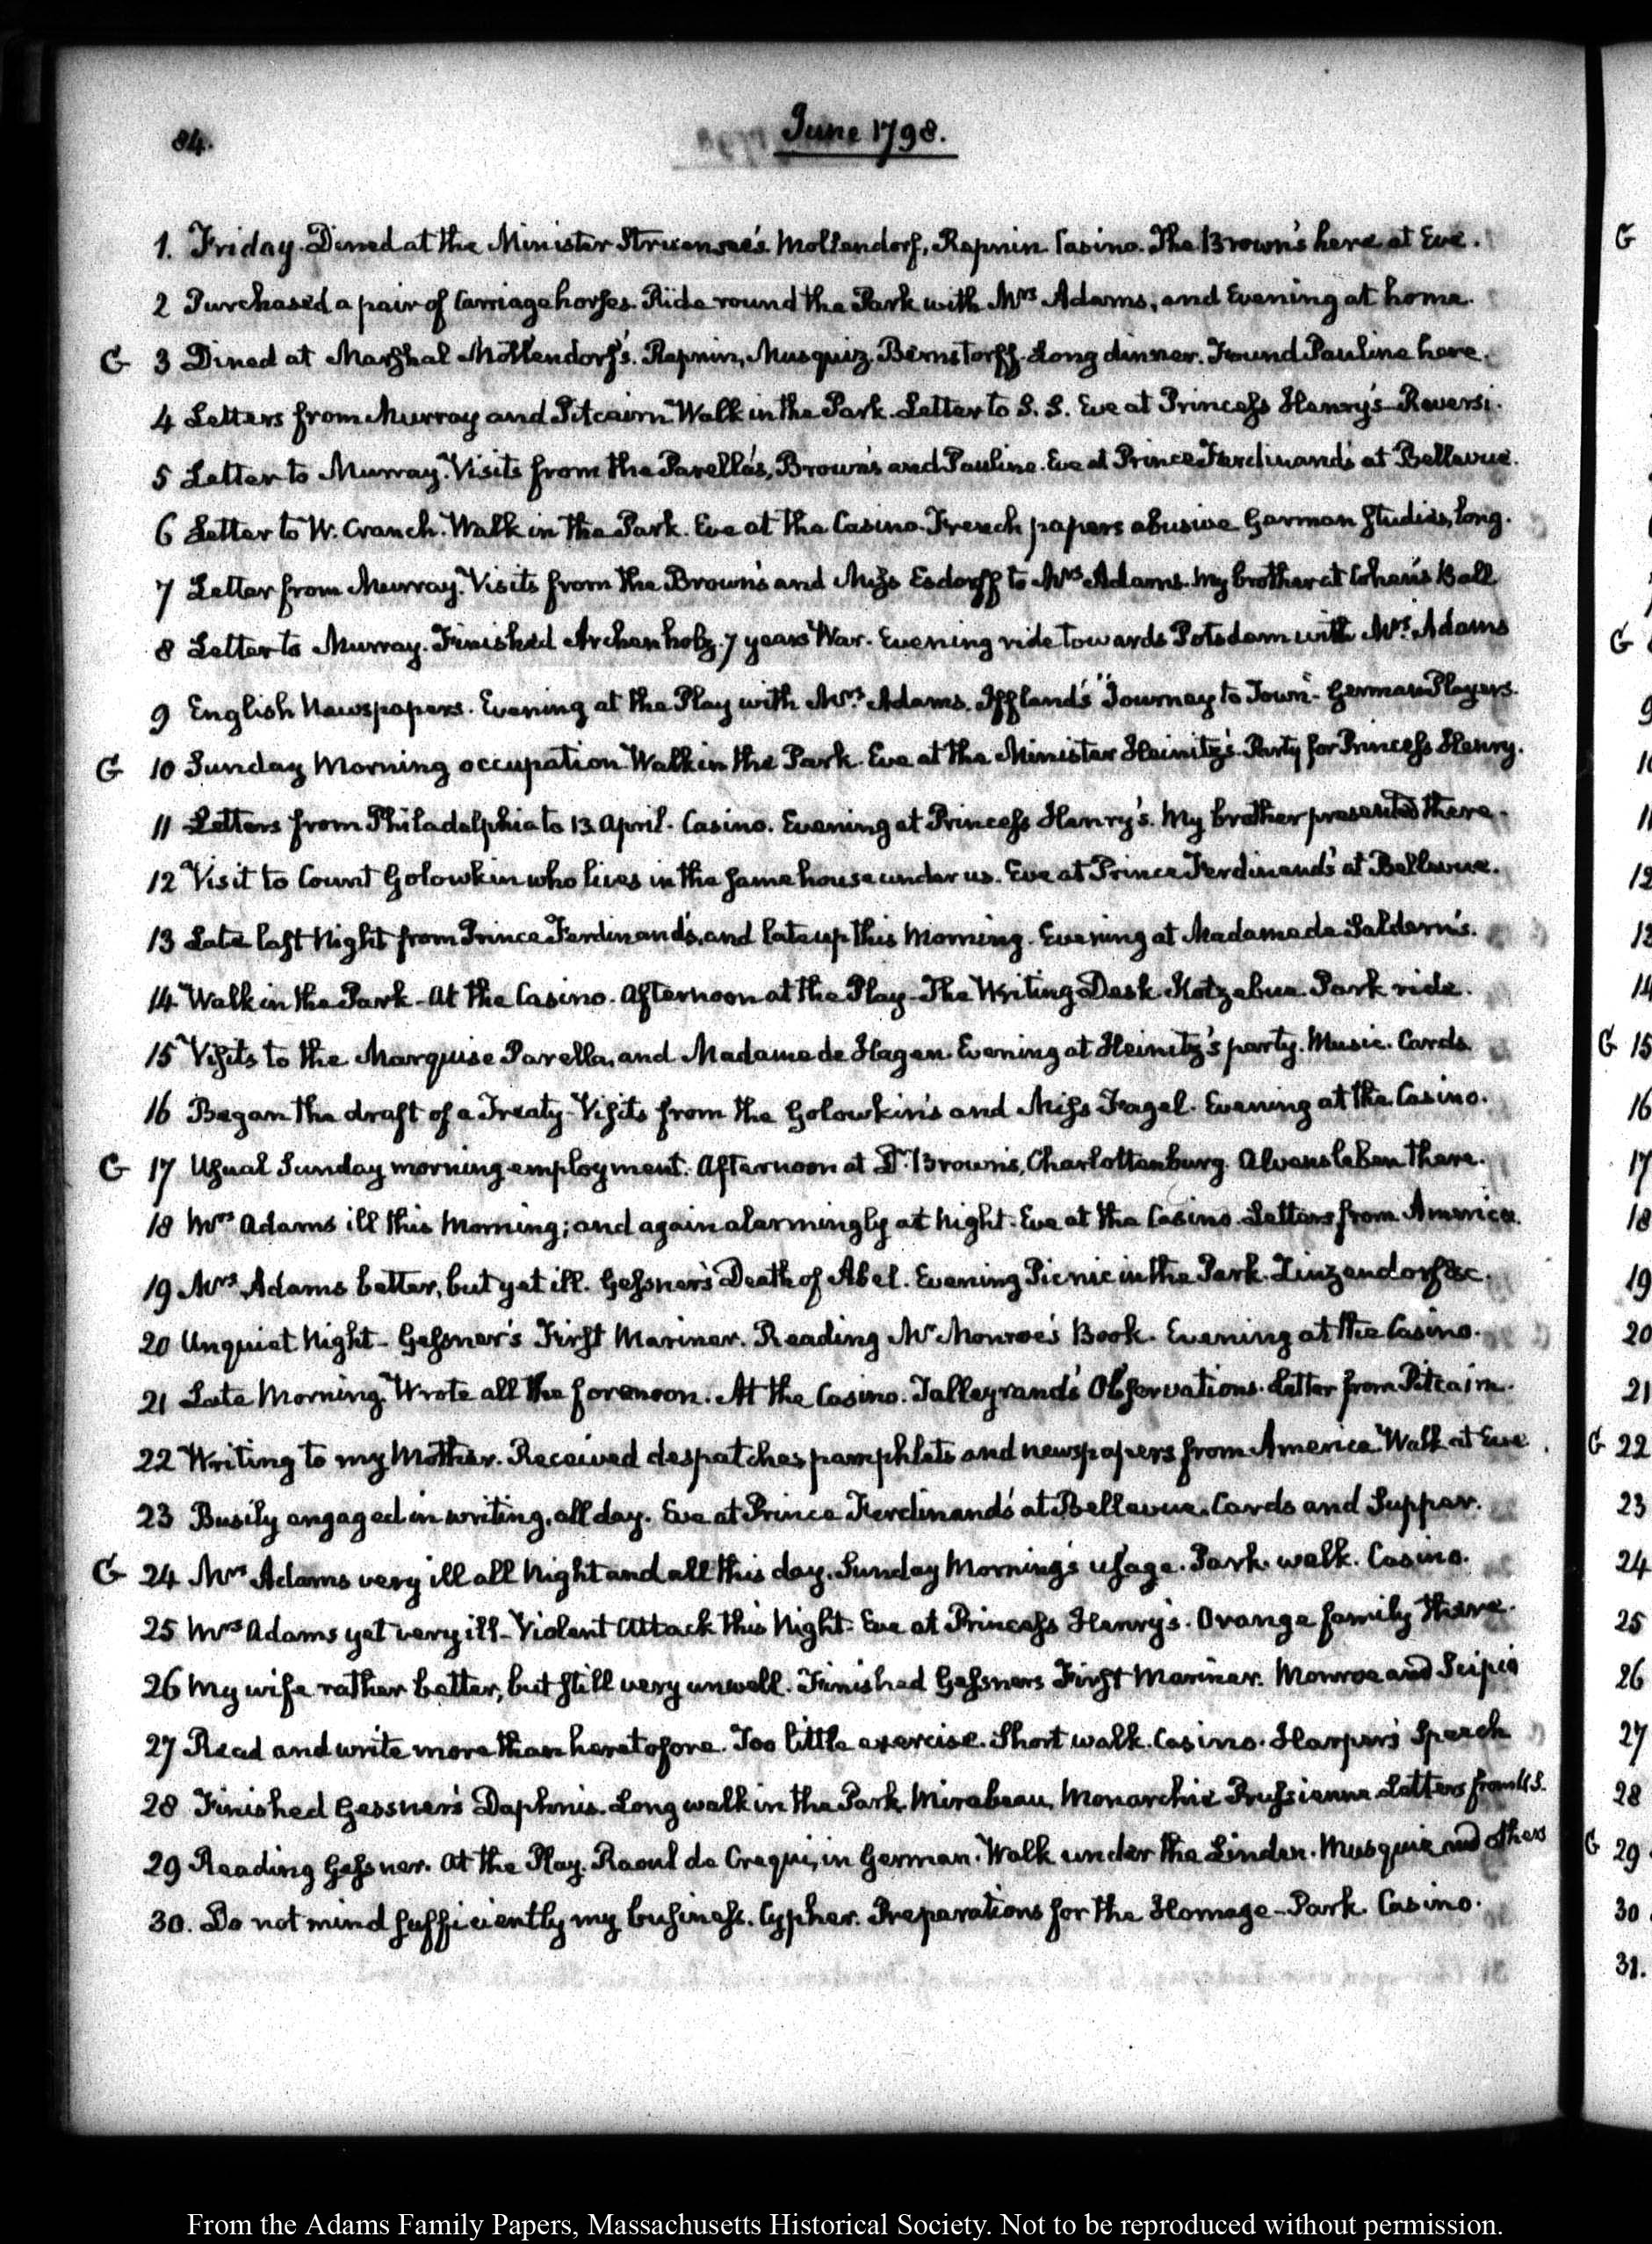 84.
June 1798.
1. Friday. Dined at the Minister Struensee's. Mollendorf, Repnin. Casino. The Brown's here at Eve.
2 Purchased a pair of Carriage horses. Ride round the Park with Mrs Adams, and Evening at home.
G 3 Dined at Marshal Möllendorf's. Repnin, Musquiz. Bernstorff. Long dinner. Found Pauline here.
4 Letters from Murray and Pitcairn. Walk in the Park. Letter to S. S. Eve at Princess Henry's Reversi.
5 Letter to Murray. Visits from the Parella's, Brown's and Pauline. Eve at Prince Ferdinand's at Bellevue.
6 Letter to W. Cranch. Walk in the Park. Eve at the Casino. French papers abusive German studies, long.
7 Letter from Murray. Visits from the Brown's and Miss Esdorff to Mrs Adams. My brother at Cohen's Ball
8 Letter to Murray. Finished Archenholz. 7 years War. Evening ride towards Potsdam with Mrs. Adams
9 English Newspapers. Evening at the Play with Mrs. Adams. Iffland's "Journey to Town"- German Players.
G 10 Sunday Morning occupation. Walk in the Park. Eve at the Minister Heinitz's. Party for Princess Henry.
11 Letters from Philadelphia to 13 April. Casino. Evening at Princess Henry's. My brother presented there.
12 Visit to Count Golowkin who lives in the same house under us. Eve at Prince Ferdinand's at Bellevue.
13 Late last Night from Prince Ferdinand's, and late up this Morning. Evening at Madame de Saldern's.
14 Walk in the Park - At the Casino. Afternoon at the Play - The Writing Desk. Kotzebue. Park ride.
15 Visits to the Marquise Parella, and Madame de Hagen. Evening at Heinitz's party. Music. Cards.
16 Began the draft of a Treaty - Visits from the Golowkin's and Miss Fagel. Evening at the Casino.
G 17 Usual Sunday morning employment. Afternoon at Dr. Brown's, Charlottenburg. Alvensleben there.
18 Mrs Adams ill this Morning; and again alarmingly at Night. Eve at the Casino. Letters from America.
19 Mrs Adams better, but yet ill. Gessner's Death of Abel. Evening Picnic in the Park. Zinzendorf &c.
20 Unquiet Night - Gessner's First Mariner. Reading Mr Monroe's Book. Evening at the Casino.
21 Late Morning. Wrote all the forenoon. At the Casino. Talleyrand's Observations. Letter from Pitcairn.
22 Writing to my Mother. Received despatches pamphlets and newspapers from America. Walk at Eve.
23 Busily engaged in writing, all day. Eve at Prince Ferdinand's at Bellevue. Cards and Supper.
G 24 Mrs Adams very ill all Night and all this day. Sunday Morning's usage. Park walk. Casino.
25 Mrs Adams yet very ill - Violent Attack this Night. Eve at Princess Henry's. Orange family there.
26 My wife rather better, but still very unwell. Finished Gessners First Mariner. Monroe and Scipio
27 Read and write more than heretofore. Too little exercise. Short walk. Casino. Harper's Speech
28 Finished Gessner's Daphnis. Long walk in the Park. Mirabeau, Monarchie Prussienne. Letters from U.S.
29 Reading Gessner. At the Play. Raoul de Crequi, in German. Walk under the Linden. Musquiz and others
30. Do not mind sufficiently my business. Cypher. Preparations for the Homage - Park. Casino.
G
G
9
10
11
12
13
14
G 15
16
17
18
19
20
21
G 22
23
24
25
26
27
28
G 29
30
31.
From the Adams Family Papers, Massachusetts Historical Society. Not to be reproduced without permission.